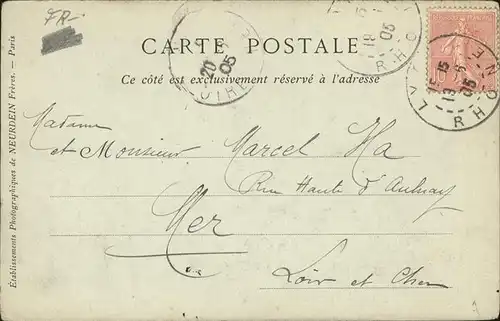 FR-
CARTE POSTALE
Ce côté est exclusivement réservé à l'adresse
Établissements Photographiques de NEURDEIN Frères. — Paris
Madame
et Monsieur Marcel Ha
Rue Haute d'Aulnay
Mer
Loir et Cher
20
05
18
05
RHO
15
18
05
RHONE